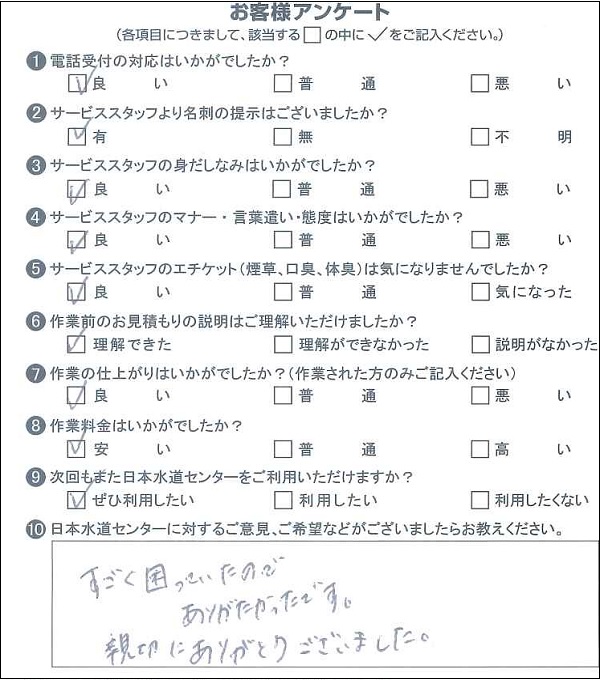 お客様アンケート
(各項目につきまして、該当する□の中に✓をご記入ください。)
❶電話受付の対応はいかがでしたか?
☑良い □普通 □悪い
❷サービススタッフより名刺の提示はございましたか?
☑有 □無 □不明
❸サービススタッフの身だしなみはいかがでしたか?
☑良い □普通 □悪い
❹サービススタッフのマナー・言葉遣い・態度はいかがでしたか?
☑良い □普通 □悪い
❺サービススタッフのエチケット(煙草、口臭、体臭)は気になりませんでしたか?
☑良い □普通 □気になった
❻作業前のお見積もりの説明はご理解いただけましたか?
☑理解できた □理解ができなかった □説明がなかった
❼作業の仕上がりはいかがでしたか?(作業された方のみご記入ください)
☑良い □普通 □悪い
❽作業料金はいかがでしたか?
☑安い □普通 □高い
❾次回もまた日本水道センターをご利用いただけますか?
☑ぜひ利用したい □利用したい □利用したくない
❿日本水道センターに対するご意見、ご希望などがございましたらお教えください。
すごく困っていたので
ありがたかったです。
親切にありがとうございました。